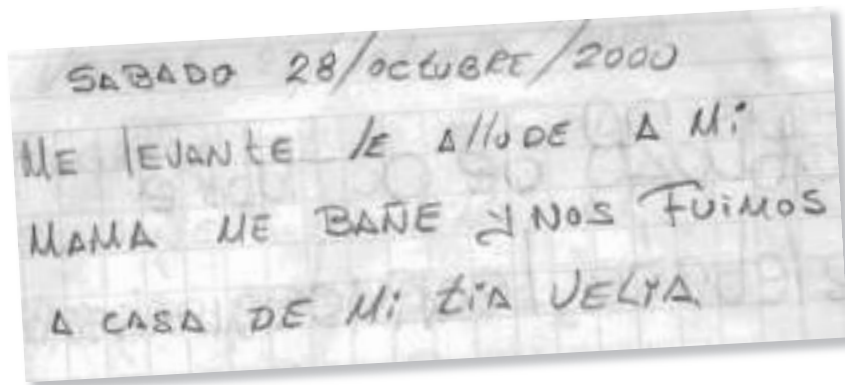 SABADO 28/octUBRE/2000
ME levANtE lE AlluDE A Mi
MAMA ME BAÑE y NOS FUiMOS
A CASA DE Mi tíA VELYA